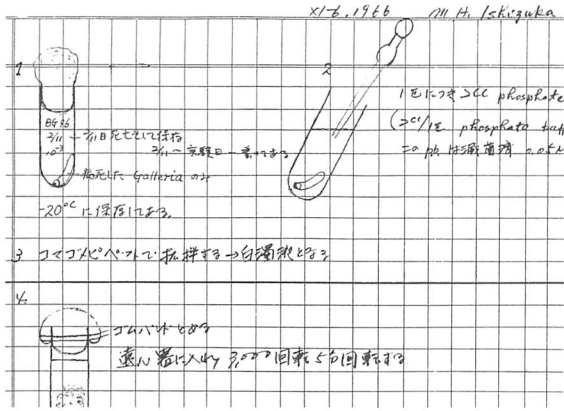 XI-6. 1966 M H. Ishizuka
1
2
BG 96
2/11
10⁻³
2/11日死亡として保存
2/11 — 実験日 — 書いてある
病死した Galleria のみ
-20°C に保存してある.
1匹につき 2cc phosphate
(2cc/1匹 phosphate buff
この は滅菌済 0.05M
3 コマゴメピペットで撹拌する→白濁液となる
4.
ゴムバンドとめる
遠心器に入れ 3,000回転 5分回転する